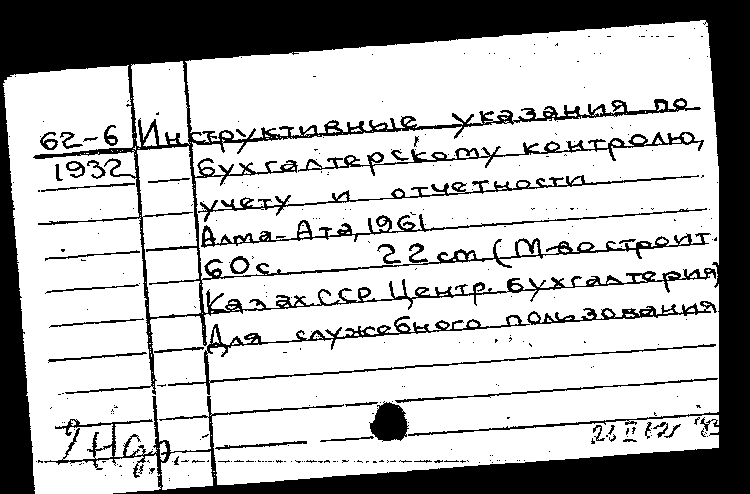 62-6 Инструктивные указания по
1932 бухгалтерскому контролю,
учету и отчетности
Алма-Ата, 1961
60с. 22 cm (М-во строит.
Казах.ССР. Центр. бухгалтерия)
Для служебного пользования